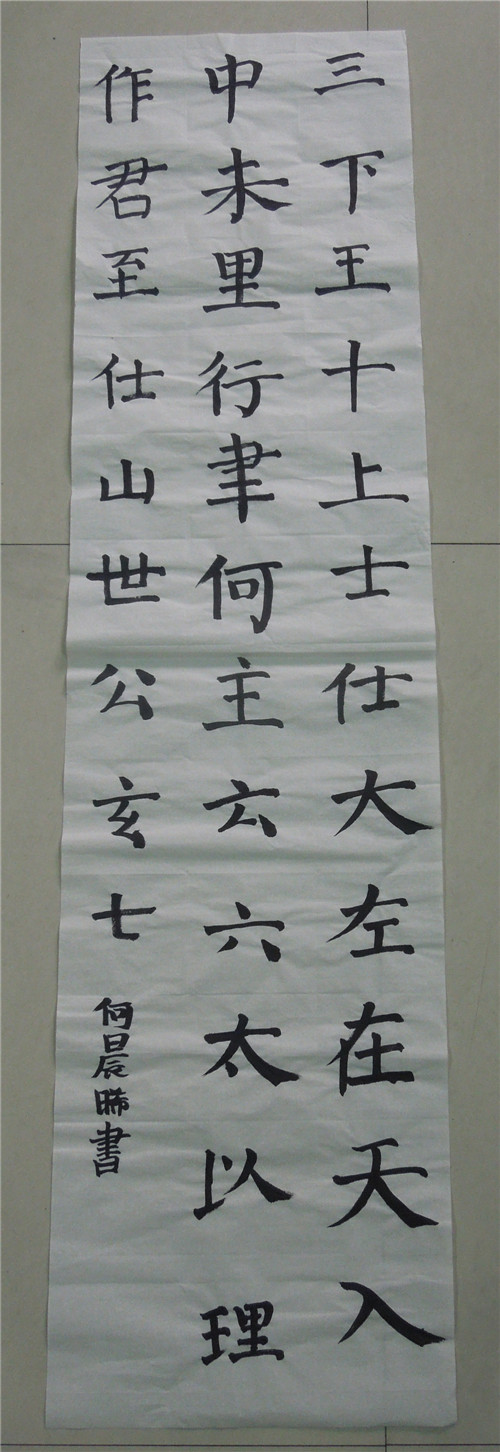 三下王十上士仕大左在天入
中未里行聿何主云六太以理
作君至仕山世公玄七
何晨晞書